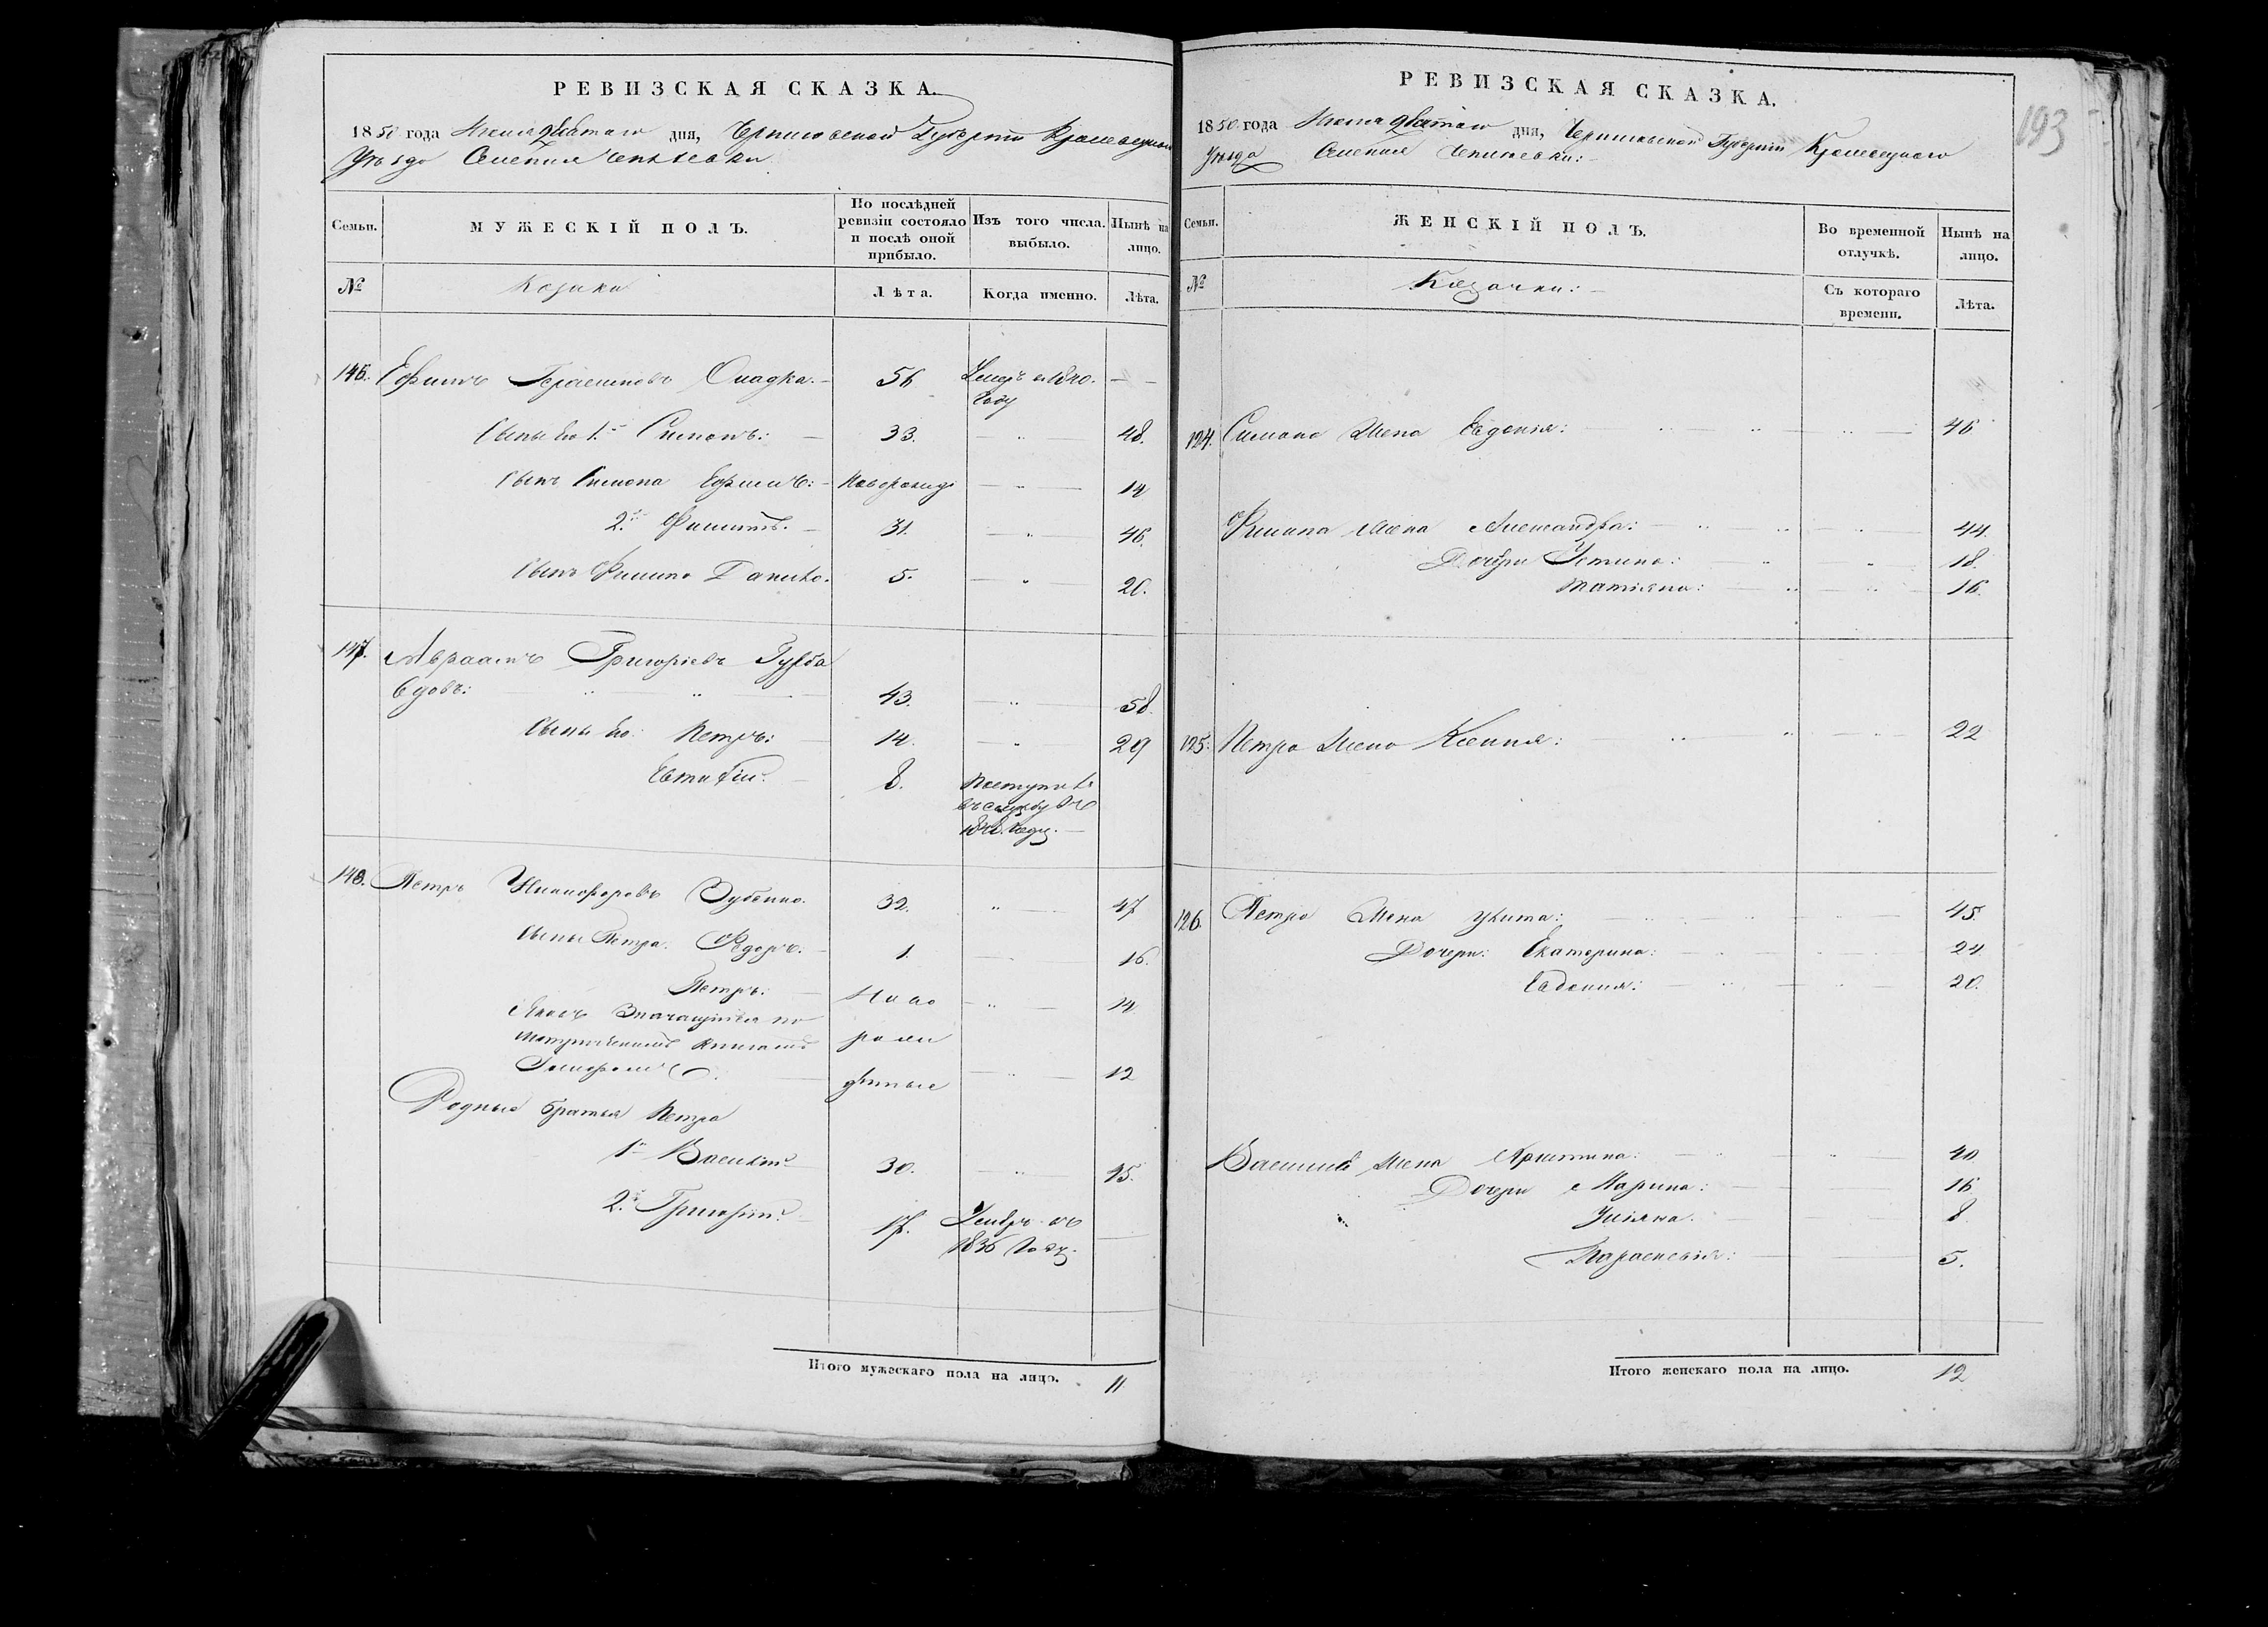 РЕВИЗСКАЯ СКАЗКА.
1850 года Июня девятаго дня, Черниговской Губерніи Кролевецкаго
Уѣзда Селенія
Семьи.
МУЖЕСКІЙ ПОЛЪ.
По послѣдней ревизіи состояло и послѣ оной прибыло.
Изъ того числа. выбыло.
Нынѣ на лицо.
№
Козаки
Лѣта.
Когда именно.
Лѣта.
146. Ефимъ Герасимовъ 56 Умеръ въ 1840. —
году
Сыны Его 1.й Симонъ: 33. — 48.
Сынъ Симона Ефимъ: Новорожд — 14
2.й Филиппъ. 31. — 46.
Сынъ Филипа Данило. 5. — 20.
147. Авраамъ Григоріевъ
Вдовъ: 43. — 58.
Сыны Его: Петръ: 14. — 29
Евстафій. 8. Поступилъ
въ службу въ
году.
148. Петръ Никифоровъ Зубенко. 32. — 47
Сыны Петра: Федоръ: 1. — 16.
Петръ: Ново — 14
Яковъ Значащійся по
Метрическимъ Книгамъ рож
денные — 12
Родные братья Петра
1й Василій 30. — 45.
2.й Григорій. 17. Умеръ въ
1836 Году.
Итого мужескаго пола на лицо. 11
РЕВИЗСКАЯ СКАЗКА.
193
1850 года Июня девятаго дня, Черниговской Губерніи Кролевецкаго
Уѣзда Селенія
Семьи.
ЖЕНСКІЙ ПОЛЪ.
Во временной отлучкѣ.
Нынѣ на лицо.
№
Козачки:
Съ котораго времени.
Лѣта.
124. Симона Жена Евдокія: 46
Филипа Жена Александра: 44.
Дочери Устина: 18.
Татіяна: 16.
125. Петра Жена Ксенія: 22
126. Петра Жена Улита: 45.
Дочери: Екатерина: 24.
Евдокия: 20.
Василія Жена Христина: 40
Дочери Марина: 16
Уліяна. 8.
Параскевія: 5.
Итого женскаго пола на лицо. 12